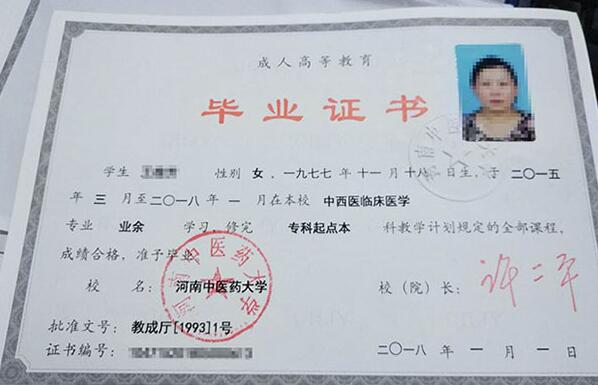 成人高等教育
毕业证书
学生 性别 女，一九七七年十一月十八日生，于二〇一五
年三月至二〇一八年一月在本校 中西医临床医学
专业 业余 学习，修完 专科起点本 科教学计划规定的全部课程，
成绩合格，准予毕业
校 名：河南中医药大学 校（院）长：许二平
河南中医药大学
批准文号：教成厅[1993]1号
证书编号： 二〇一八年一月一日